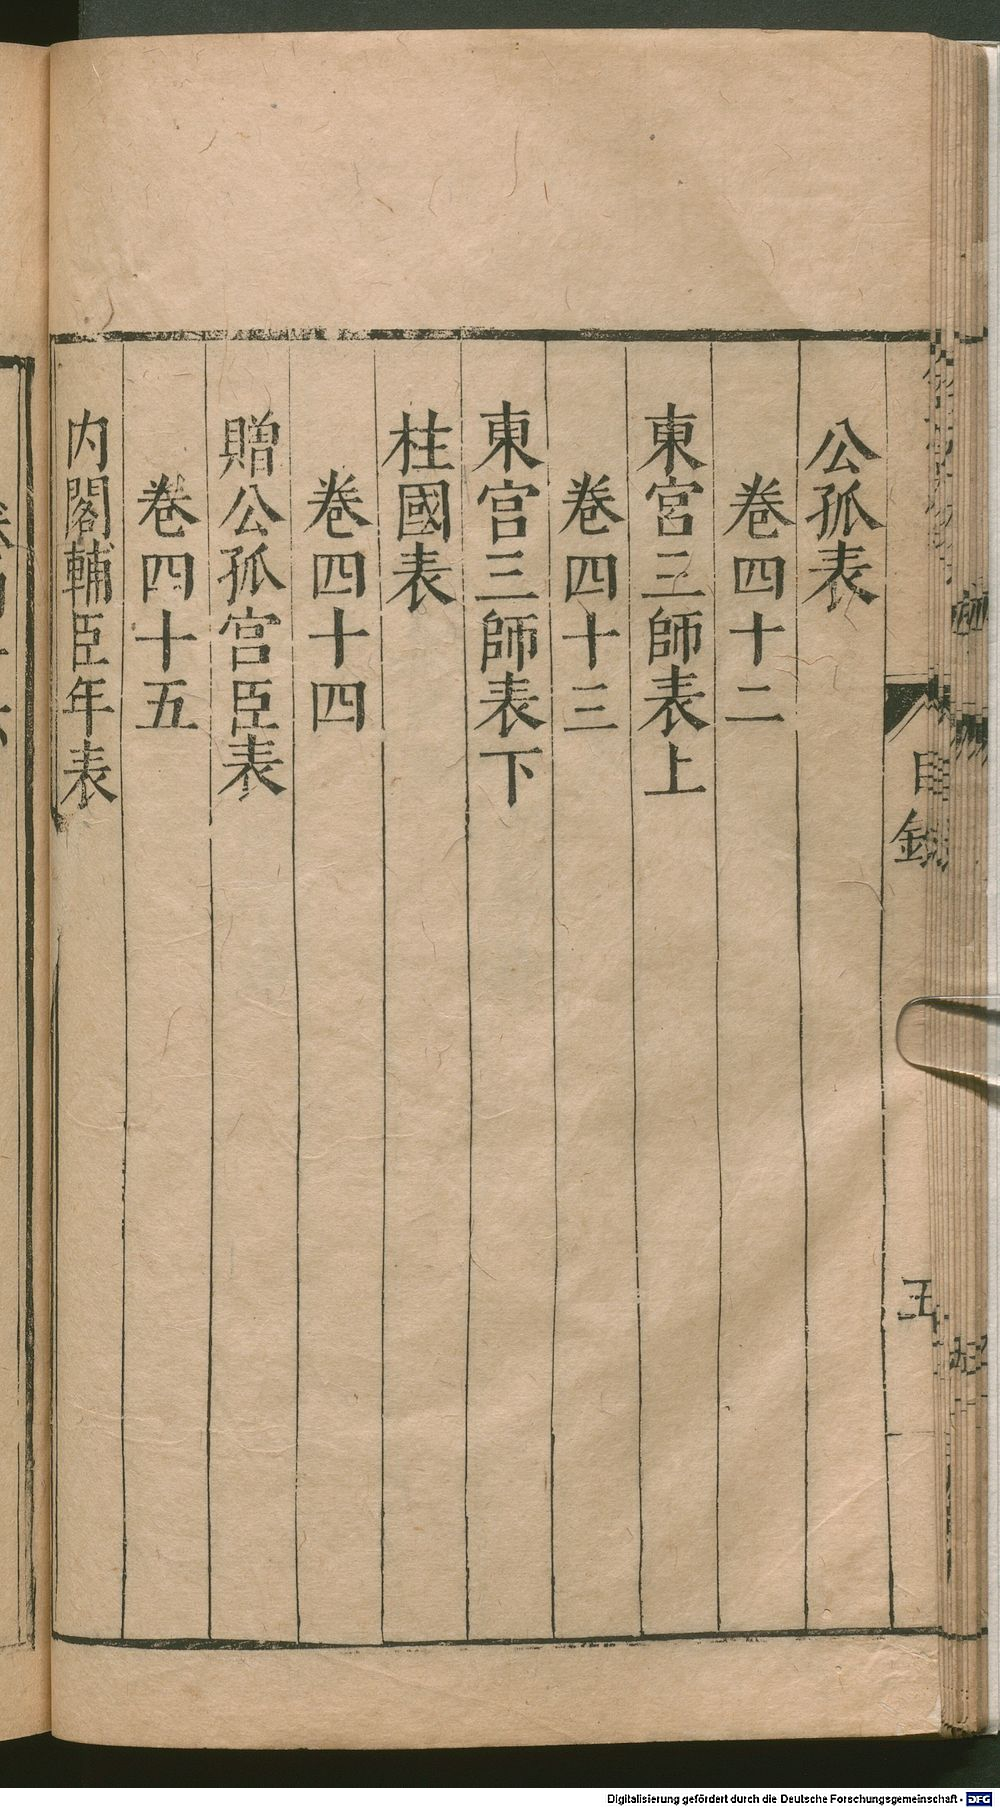 公孤表
卷四十二
東宮三師表上
卷四十三
東宮三師表下
柱國表
卷四十四
贈公孤宮臣表
卷四十五
內閣輔臣年表
目錄
五
Digitalisierung gefördert durch die Deutsche Forschungsgemeinschaft - DFG